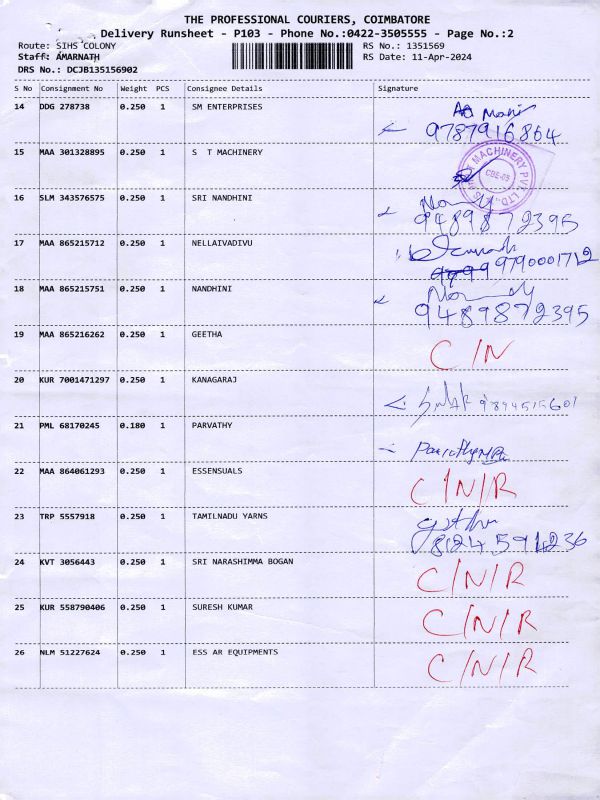 THE PROFESSIONAL COURIERS, COIMBATORE
Delivery Runsheet - P103 - Phone No.:0422-3505555 - Page No.:2
Route: SIHS COLONY RS No.: 1351569
Staff: AMARNATH RS Date: 11-Apr-2024
DRS No.: DCJB135156902
S No Consignment No Weight PCS Consignee Details Signature
14 DDG 278738 0.250 1 SM ENTERPRISES
9787916864
15 MAA 301328895 0.250 1 S T MACHINERY
MACHINERY PVT. LTD.
CBE-05
16 SLM 343576575 0.250 1 SRI NANDHINI
9489872395
17 MAA 865215712 0.250 1 NELLAIVADIVU
9790001712
18 MAA 865215751 0.250 1 NANDHINI
9489872395
19 MAA 865216262 0.250 1 GEETHA C/N
20 KUR 7001471297 0.250 1 KANAGARAJ
9894515601
21 PML 68170245 0.180 1 PARVATHY
22 MAA 864061293 0.250 1 ESSENSUALS C/N/R
23 TRP 5557918 0.250 1 TAMILNADU YARNS
8124591236
24 KVT 3056443 0.250 1 SRI NARASHIMMA BOGAN C/N/R
25 KUR 558790406 0.250 1 SURESH KUMAR C/N/R
26 NLM 51227624 0.250 1 ESS AR EQUIPMENTS C/N/R